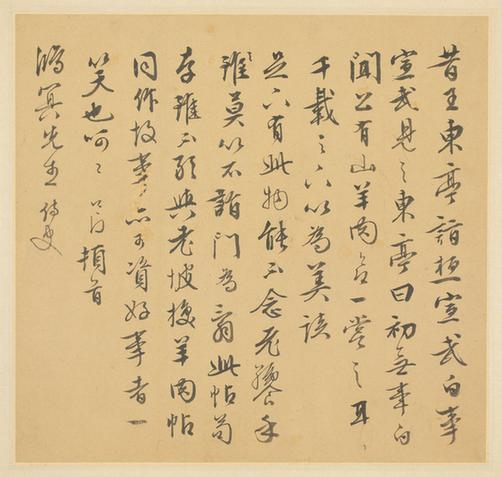 昔王東亭詣桓宣武白事
宣武見之東亭曰初無事白
聞公有山羊肉一嘗之耳
千載之下以為美談
足下有此物能不念老饕乎
莫以不詣門為此帖苟
存雖不能與老坡換羊肉帖
同作故事亦可資好事者一
笑也呵〻頓首
鴻冥先生侍史